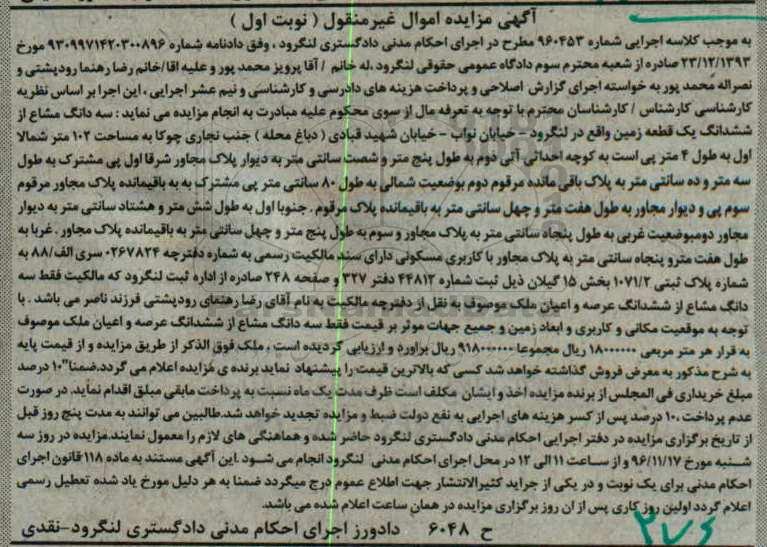 آگهی مزایده اموال غیرمنقول ( نوبت اول )
به موجب کلاسه اجرایی شماره ۹۶۰۴۵۳ مطرح در اجرای احکام مدنی دادگستری لنگرود ، وفق دادنامه شماره ۹۳۰۹۹۷۱۴۲۰۳۰۰۸۹۶ مورخ
۲۳/۱۲/۱۳۹۳ صادره از شعبه محترم سوم دادگاه عمومی حقوقی لنگرود ،له خانم / آقا پرویز محمد پور و علیه اقا/خانم رضا رهنما رودپشتی و
نصراله محمد پور به خواسته اجرای گزارش اصلاحی و پرداخت هزینه های دادرسی و کارشناسی و نیم عشر اجرایی ، این اجرا بر اساس نظریه
کارشناسی کارشناس / کارشناسان محترم با توجه به تعرفه مال از سوی محکوم علیه مبادرت به انجام مزایده می نماید : سه دانگ مشاع از
ششدانگ یک قطعه زمین واقع در لنگرود – خیابان نواب – خیابان شهید قبادی ( دباغ محله ) جنب نجاری چوکا به مساحت ۱۰۲ متر شمالا
اول به طول ۴ متر پی است به کوچه احداثی آتی دوم به طول پنج متر و شصت سانتی متر به دیوار پلاک مجاور شرقا اول پی مشترک به طول
سه متر و ده سانتی متر به پلاک باقی مانده مرقوم دوم بوضعیت شمالی به طول ۸۰ سانتی متر پی مشترک به به باقیمانده پلاک مجاور مرقوم
سوم پی و دیوار مجاور به طول هفت متر و چهل سانتی متر به باقیمانده پلاک مرقوم . جنوبا اول به طول شش متر و هشتاد سانتی متر به دیوار
مجاور دومبوضعیت غربی به طول پنجاه سانتی متر به پلاک مجاور و سوم به طول پنج متر و چهل سانتی متر به باقیمانده پلاک مجاور . غربا به
طول هفت مترو پنجاه سانتی متر به پلاک مجاور با کاربری مسکونی دارای سند مالکیت رسمی به شماره دفترچه ۰۲۶۷۸۲۴ سری الف/۸۸ به
شماره پلاک ثبتی ۱۰۷۱/۲ بخش ۱۵ گیلان ذیل ثبت شماره ۴۴۸۱۲ دفتر ۳۲۷ و صفحه ۲۴۸ صادره از اداره ثبت لنگرود که مالکیت فقط سه
دانگ مشاع از ششدانگ عرصه و اعیان ملک موصوف به نقل از دفترچه مالکیت به نام آقای رضا رهنمای رودپشتی فرزند ناصر می باشد . با
توجه به موقعیت مکانی و کاربری و ابعاد زمین و جمیع جهات موثر بر قیمت فقط سه دانگ مشاع از ششدانگ عرصه و اعیان ملک موصوف
به قرار هر متر مربعی ۱۸۰۰۰۰۰۰ ریال مجموعا ۹۱۸۰۰۰۰۰۰ ریال براورد و ارزیابی گردیده است ، ملک فوق الذکر از طریق مزایده و از قیمت پایه
به شرح مذکور به معرض فروش گذاشته خواهد شد کسی که بالاترین قیمت را پیشنهاد نماید برنده ی مزایده اعلام می گردد.ضمنا"۱۰ درصد
مبلغ خریداری فی المجلس از برنده مزایده اخذ و ایشان مکلف است ظرف مدت یک ماه نسبت به پرداخت مابقی مبلق اقدام نماید. در صورت
عدم پرداخت ،۱۰ درصد پس از کسر هزینه های اجرایی به نفع دولت ضبط و مزایده تجدید خواهد شد.طالبین می توانند به مدت پنج روز قبل
از تاریخ برگزاری مزایده در دفتر اجرایی احکام مدنی دادگستری لنگرود حاضر شده و هماهنگی های لازم را معمول نمایند.مزایده در روز سه
شنبه مورخ ۹۶/۱۱/۱۷ و از ساعت ۱۱ الی ۱۲ در محل اجرای احکام مدنی لنگرود انجام می شود .این آگهی مستند به ماده ۱۱۸ قانون اجرای
احکام مدنی برای یک نوبت و در یکی از جراید کثیرالانتشار جهت اطلاع عموم درج میگردد ضمنا به هر دلیل مورخ یاد شده تعطیل رسمی
اعلام گردد اولین روز کاری پس از ان روز برگزاری مزایده در همان ساعت اعلام شده می باشد.
ح ۶۰۴۸ دادورز اجرای احکام مدنی دادگستری لنگرود-نقدی
۲۷۶